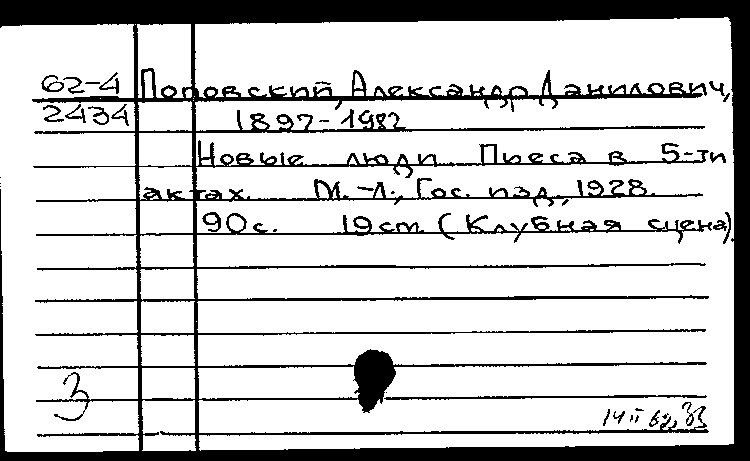 62-4 Поповский, Александр Данилович,
2434 1897-1982
Новые люди. Пьеса в 5-ти
актах. М.-Л., Гос. изд., 1928.
90с. 19cm. (Клубная сцена).
3
14 II 62,